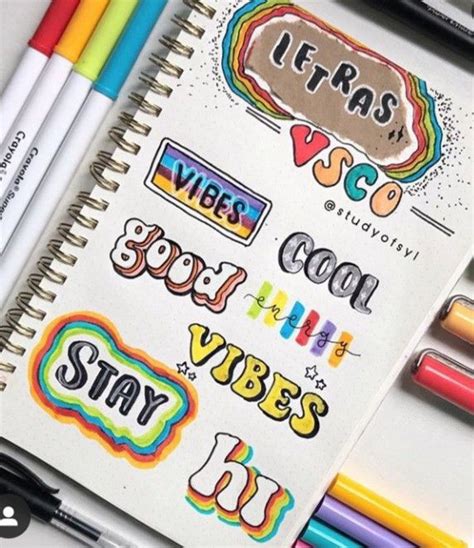 LETRAS
VSCO
@studyofsyl
VIBES
COOL
good
energy
VIBES
STAY
hi
Crayola
Crayola Super